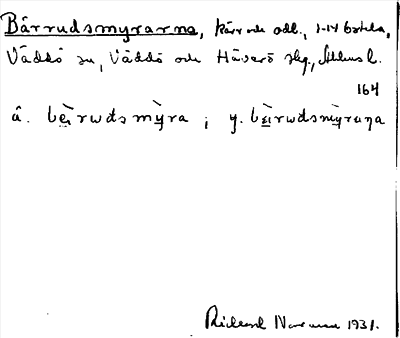 Bårrudsmyrarna, kärr och odl., 1-14 bstela,
Väddö sn, Väddö och Häverö skg, Sthlms l.
164
â. bèirwds mỳra ; y. bèirwdsmỳrana
Rickard Norman 1931.